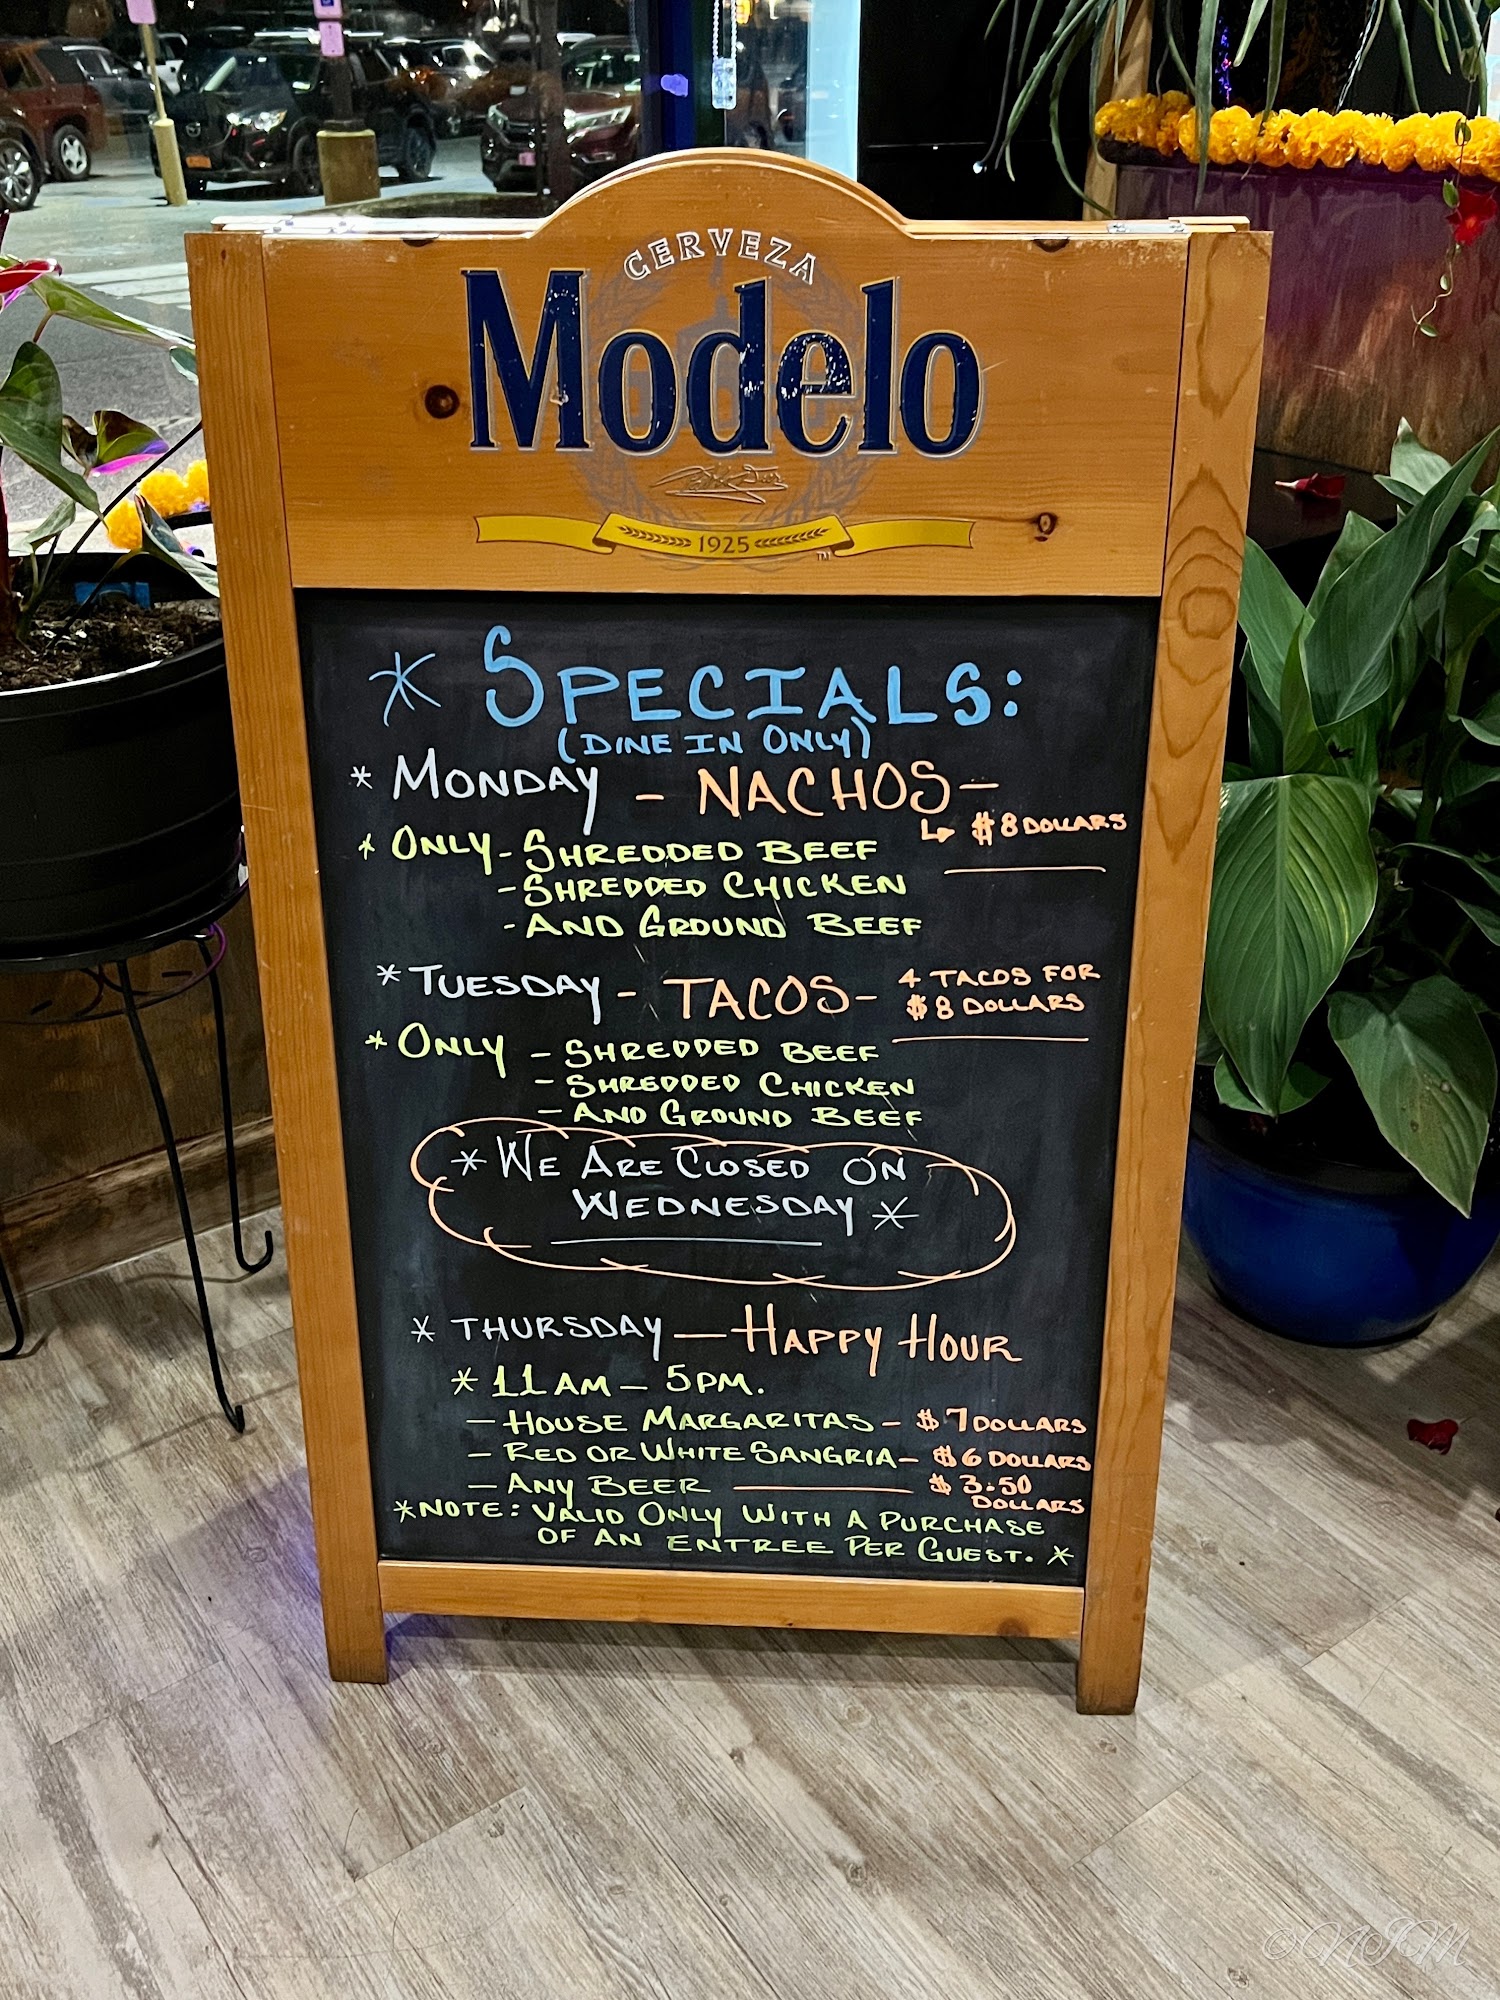 CERVEZA
Modelo
1925
TM
* SPECIALS:
(DINE IN ONLY)
* MONDAY - NACHOS -
$8 DOLLARS
* ONLY - SHREDDED BEEF
- SHREDDED CHICKEN
- AND GROUND BEEF
* TUESDAY - TACOS - 4 TACOS FOR
$8 DOLLARS
* ONLY - SHREDDED BEEF
- SHREDDED CHICKEN
- AND GROUND BEEF
* WE ARE CLOSED ON
WEDNESDAY *
* THURSDAY — HAPPY HOUR
* 11AM - 5PM.
- HOUSE MARGARITAS - $7 DOLLARS
- RED OR WHITE SANGRIA - $6 DOLLARS
- ANY BEER — $3.50
DOLLARS
* NOTE: VALID ONLY WITH A PURCHASE
OF AN ENTREE PER GUEST. *
© NJM